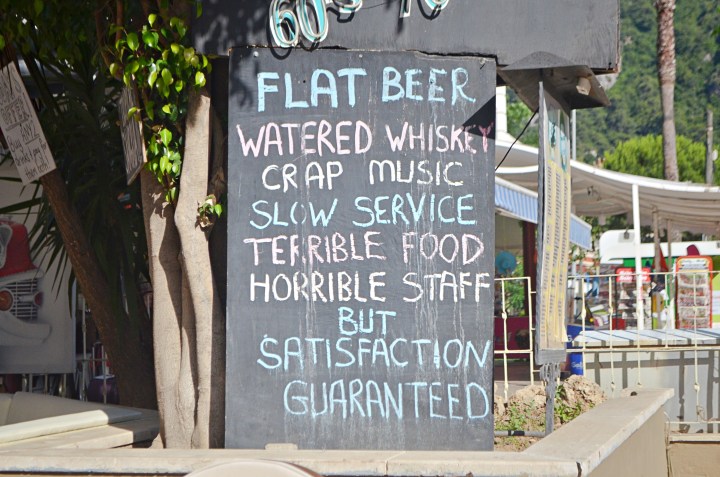 60's 70
FLAT BEER
WATERED WHISKEY
CRAP MUSIC
SLOW SERVICE
TERRIBLE FOOD
HORRIBLE STAFF
BUT
SATISFACTION
GUARANTEED